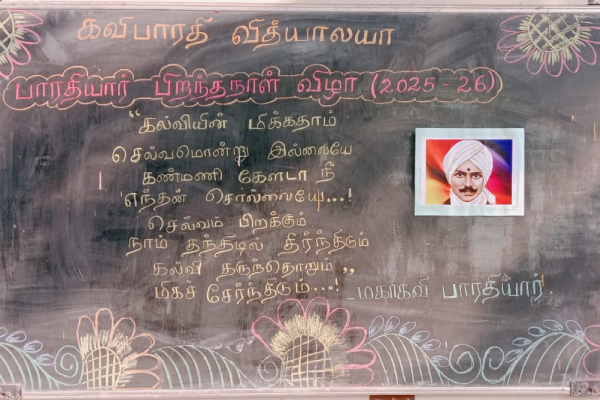 கவிபாரதி வித்யாலயா
பாரதியார் பிறந்தநாள் விழா (2025-26)
"கல்வியின் மிக்கதாம்
செல்வமொன்று இல்லையே
கண்மணி கேளடா நீ
எந்தன் சொல்லையே...!
செல்வம் பிறக்கும்
நாம் தந்திடில் தீர்ந்திடும்
கல்வி தருந்தொறும்"
மிகச் சேர்ந்திடும்...! -மகாகவி பாரதியார்.